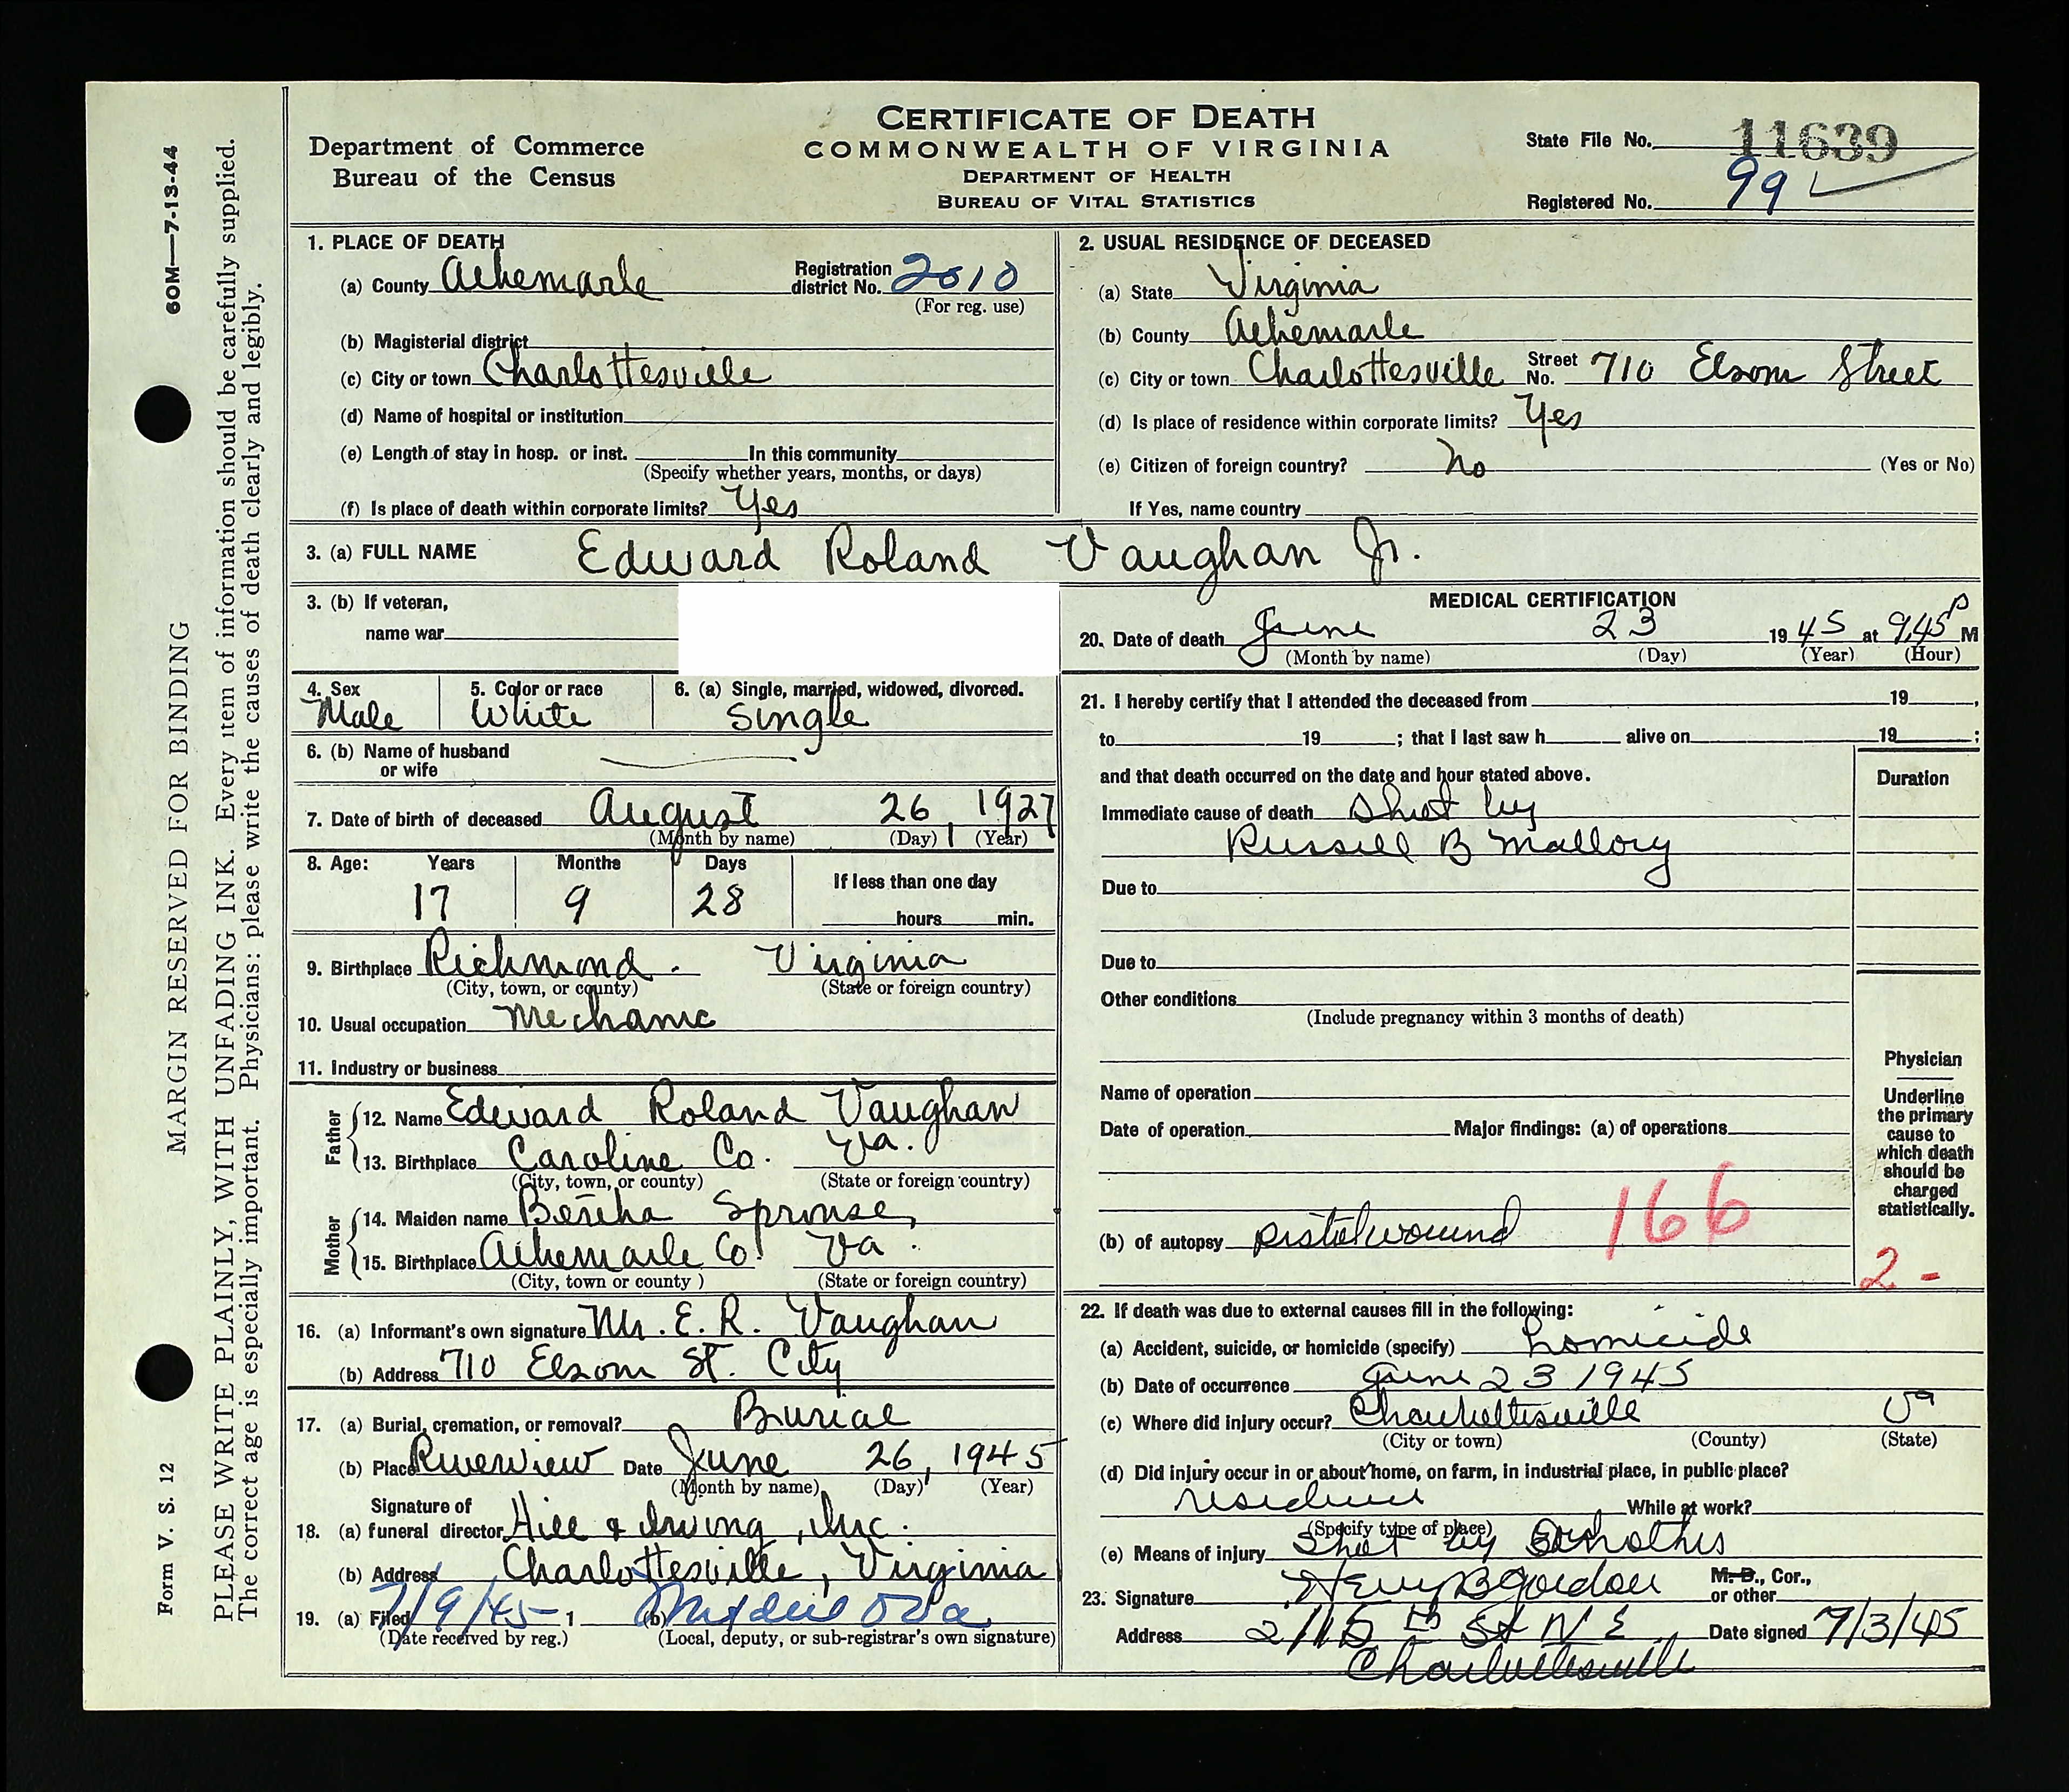 CERTIFICATE OF DEATH
COMMONWEALTH OF VIRGINIA
DEPARTMENT OF HEALTH
BUREAU OF VITAL STATISTICS
Department of Commerce
Bureau of the Census
State File No. 11639
Registered No. 99
60M—7-13-44
MARGIN RESERVED FOR BINDING
PLEASE WRITE PLAINLY, WITH UNFADING INK. Every item of information should be carefully supplied.
The correct age is especially important. Physicians: please write the causes of death clearly and legibly.
Form V. S. 12
1. PLACE OF DEATH
(a) County Albemarle Registration district No. 2010
(For reg. use)
(b) Magisterial district
(c) City or town Charlottesville
(d) Name of hospital or institution
(e) Length of stay in hosp. or inst. In this community
(Specify whether years, months, or days)
(f) Is place of death within corporate limits? Yes
2. USUAL RESIDENCE OF DECEASED
(a) State Virginia
(b) County Albemarle
(c) City or town Charlottesville Street No. 710 Elsom Street
(d) Is place of residence within corporate limits? Yes
(e) Citizen of foreign country? No (Yes or No)
If Yes, name country
3. (a) FULL NAME Edward Roland Vaughan Jr.
3. (b) If veteran,
name war
4. Sex Male
5. Color or race White
6. (a) Single, married, widowed, divorced. Single
6. (b) Name of husband
or wife
7. Date of birth of deceased August 26, 1927
(Month by name) (Day) (Year)
8. Age: Years Months Days
17 9 28
If less than one day
hours min.
9. Birthplace Richmond. Virginia
(City, town, or county) (State or foreign country)
10. Usual occupation Mechanic
11. Industry or business
Father
12. Name Edward Roland Vaughan
13. Birthplace Caroline Co. Va.
(City, town, or county) (State or foreign country)
Mother
14. Maiden name Bertha Sprouse,
15. Birthplace Albemarle Co. Va.
(City, town or county) (State or foreign country)
16. (a) Informant's own signature Mr. E. R. Vaughan
(b) Address 710 Elsom St. City
17. (a) Burial, cremation, or removal? Burial
(b) Place Riverview Date June 26, 1945
(Month by name) (Day) (Year)
Signature of
18. (a) funeral director Hill & Irving, Inc.
(b) Address Charlottesville, Virginia
19. (a) Filed 7/9/45 1 (b)
(Date received by reg.) (Local, deputy, or sub-registrar's own signature)
MEDICAL CERTIFICATION
20. Date of death June 23 1945 at 9,45 P M
(Month by name) (Day) (Year) (Hour)
21. I hereby certify that I attended the deceased from 19 ,
to 19 ; that I last saw h alive on 19 ;
and that death occurred on the date and hour stated above.
Duration
Immediate cause of death Shot by
Russell B Mallory
Due to
Due to
Other conditions
(Include pregnancy within 3 months of death)
Physician
Underline
the primary
cause to
which death
should be
charged
statistically.
Name of operation
Date of operation Major findings: (a) of operations
(b) of autopsy pistol wound 166
2 -
22. If death was due to external causes fill in the following:
(a) Accident, suicide, or homicide (specify) homicide
(b) Date of occurrence June 23 1945
(c) Where did injury occur? Charlottesville Va
(City or town) (County) (State)
(d) Did injury occur in or about home, on farm, in industrial place, in public place?
residence While at work?
(Specify type of place)
(e) Means of injury Shot by
23. Signature Henry B Gordon M.D., Cor.,
or other
Address St N E Date signed 7/3/45
Charlottesville